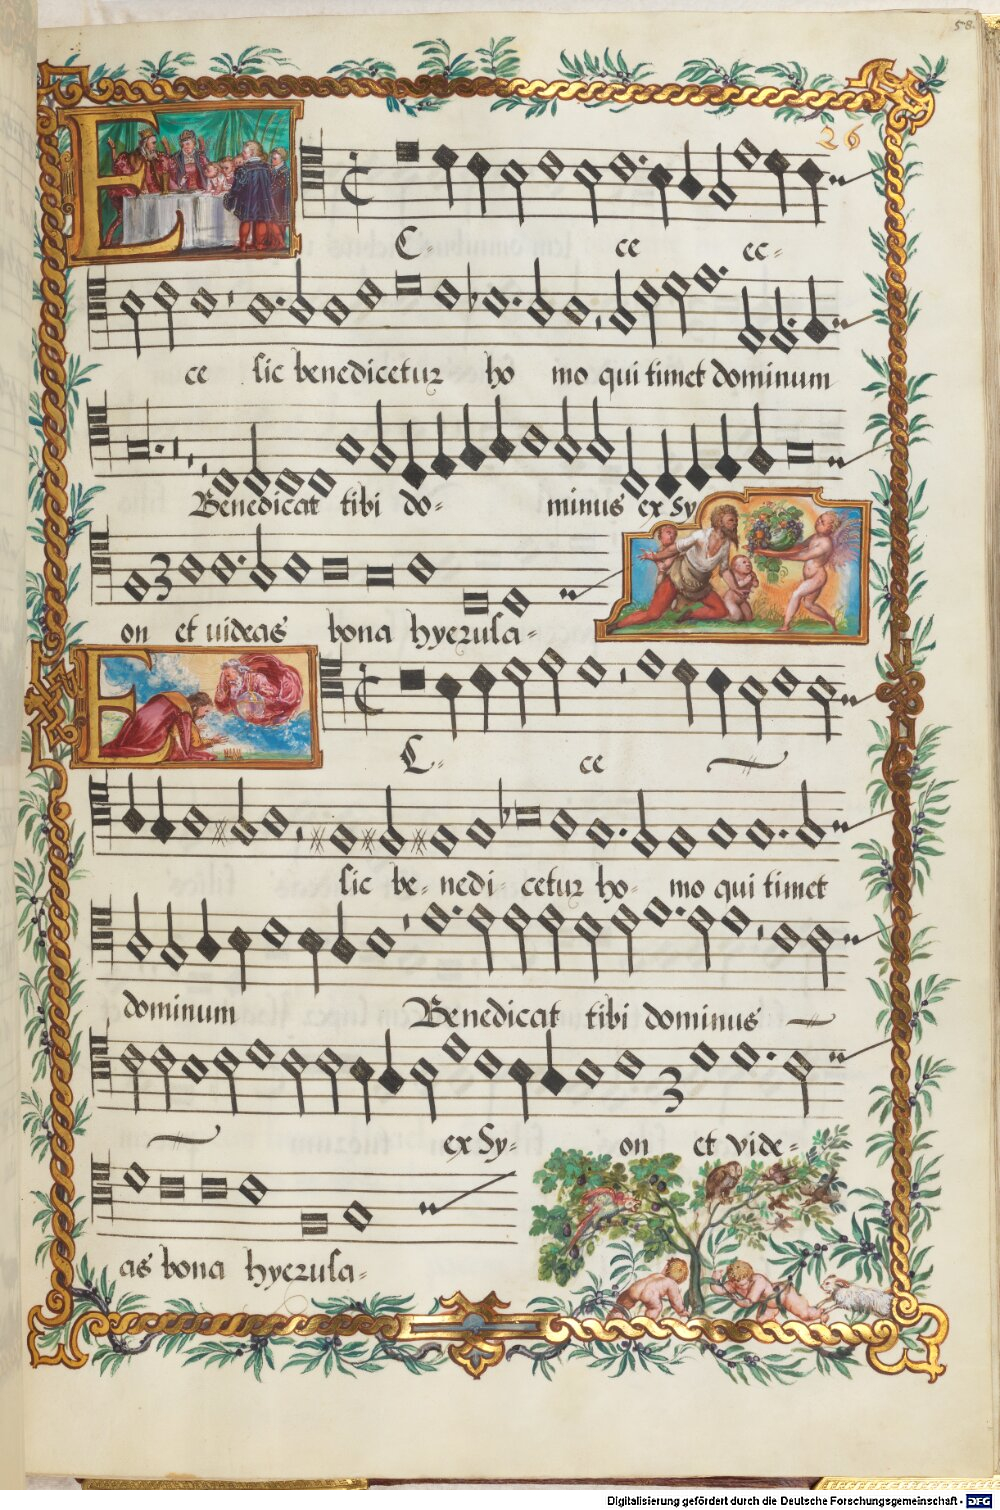 58.
26
E C- ce ec-
ce sic benedicetur ho mo qui timet dominum
Benedicat tibi do- minus ex Sy
3
on et uideas bona hyerusa-
E C- ce
sic be- nedi- cetur ho- mo qui timet
dominum Benedicat tibi dominus
3
ex Sy- on et vide-
as bona hyerusa-
Digitalisierung gefördert durch die Deutsche Forschungsgemeinschaft - DFG